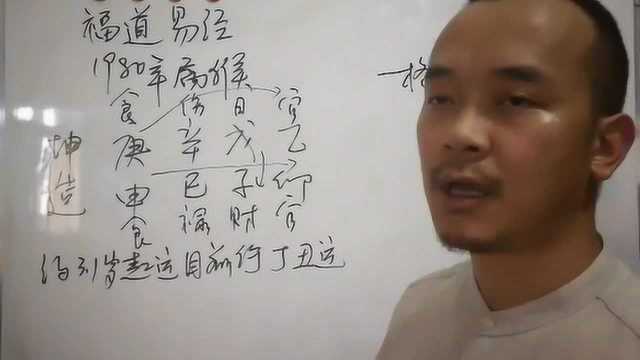 福道易经
1980年属猴
一格
食 伤 日 官
庚 辛 戊 乙
坤造
申 巳 子 卯
食 禄 财 官
约 岁起运目前行丁丑运